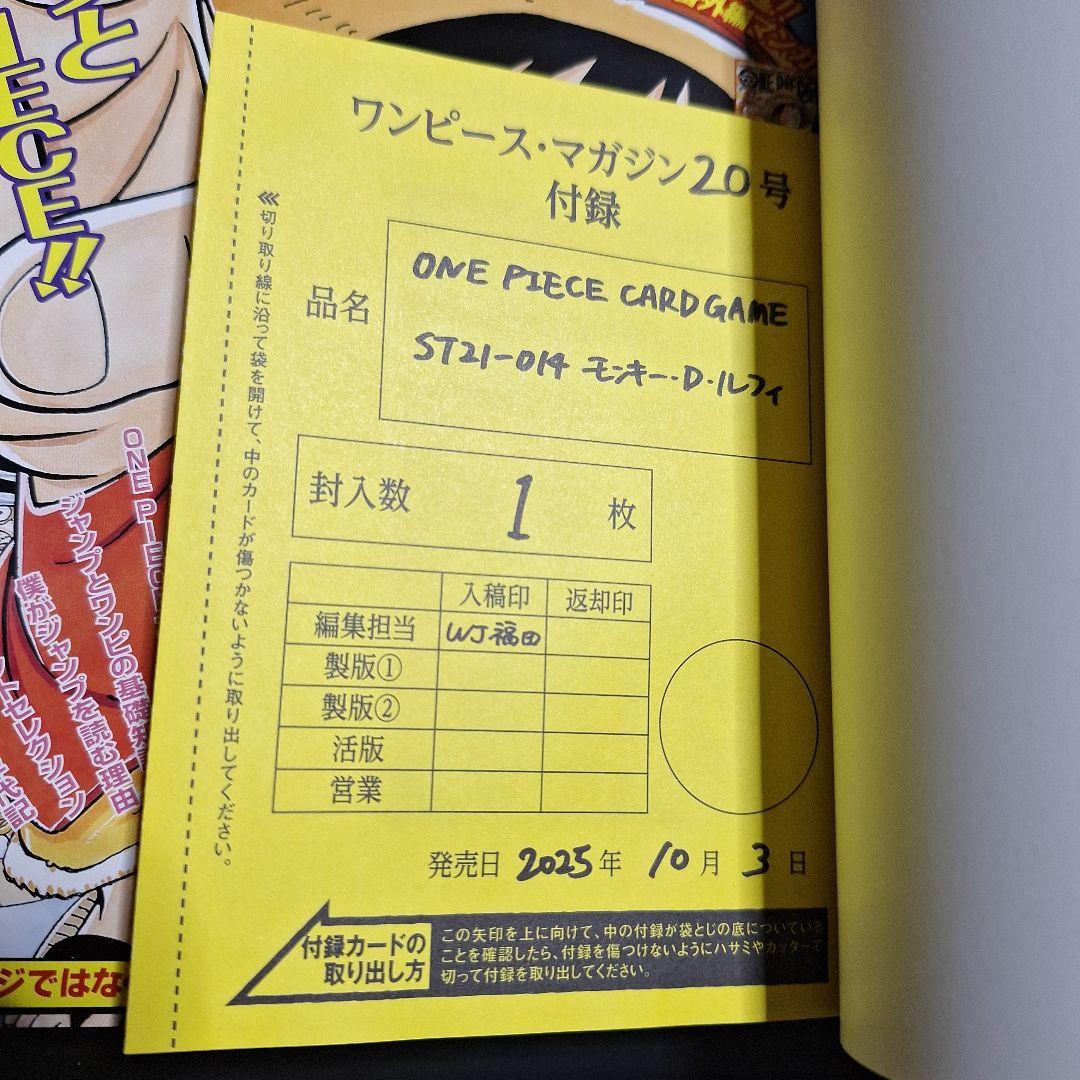 ワンピース・マガジン20号
付録
品名
ONE PIECE CARD GAME
ST21-014 モンキー・D・ルフィ
封入数 1 枚
入稿印 返却印
編集担当 WJ福田
製版①
製版②
活版
営業
発売日 2025年 10月 3日
付録カードの
取り出し方
この矢印を上に向けて、中の付録が袋とじの底についている
ことを確認したら、付録を傷つけないようにハサミやカッターで
切って付録を取り出してください。
切り取り線に沿って袋を開けて、中のカードが傷つかないように取り出してください。
ECE!!
ONE PIEC
ジャンプとワンピの基礎知
僕がジャンプを読む理由
トセレクション
代記
ジではな